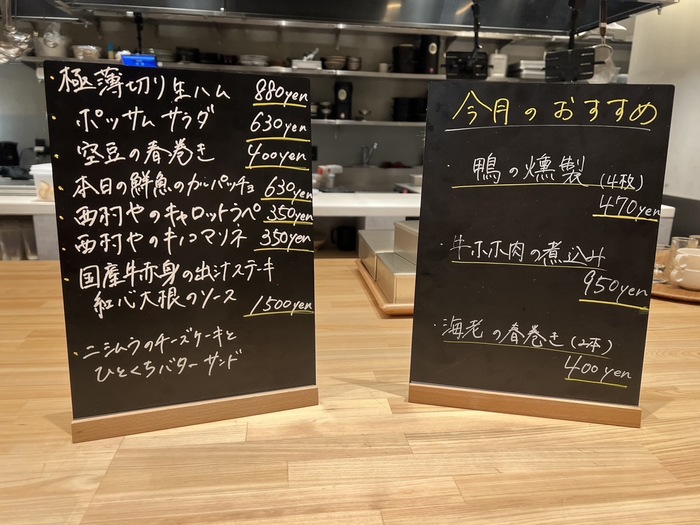 ・極薄切り生ハム 880yen
・ポッサムサラダ 630yen
・空豆の春巻き 400yen
・本日の鮮魚のカルパッチョ 630yen
・西村やのキャロットラペ 350yen
・西村やのキノコマリネ 350yen
・国産牛赤身の出汁ステーキ
紅心大根のソース 1500yen
・ニシムウのチーズケーキと
ひとくちバターサンド
今月のおすすめ
・鴨の燻製 (4枚)
470yen
・牛ホホ肉の煮込み
950yen
・海老の春巻き (2本)
400yen